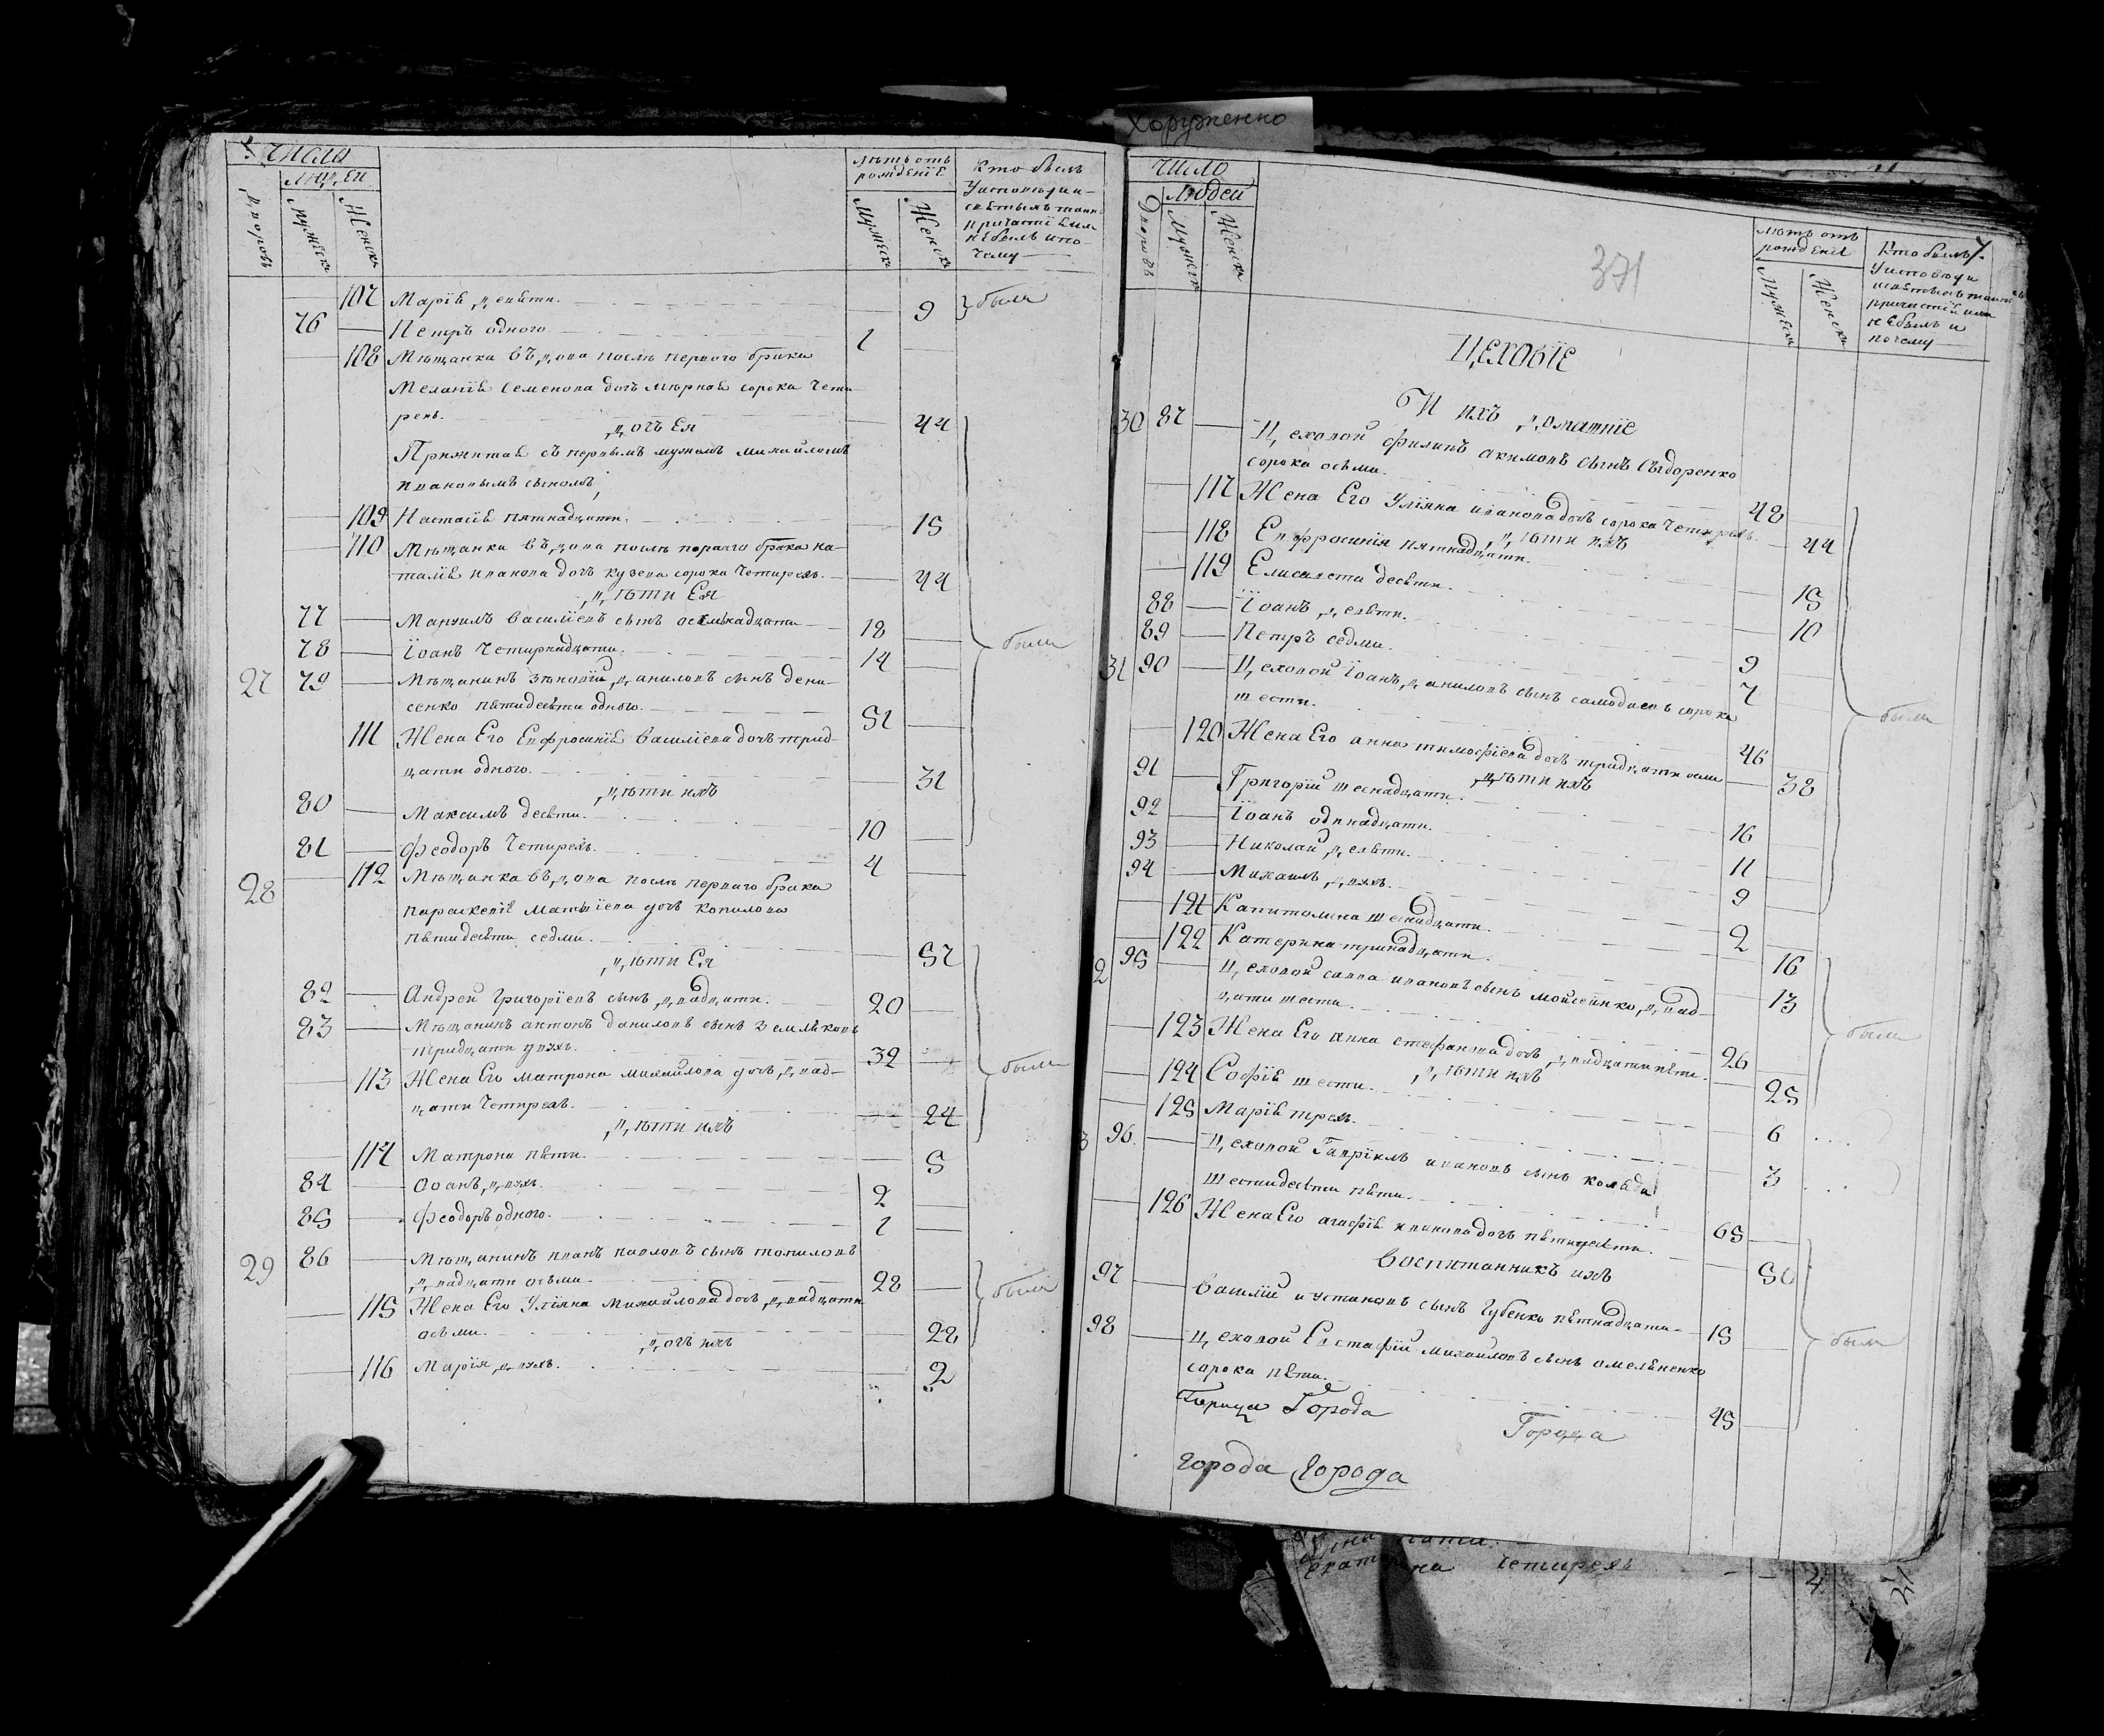 Хоруженко
Число
Людей
Дворовъ
Мужеска
Женска
Лѣтъ отъ
рожденїѣ
Мужеска
Женска
Кто былъ
Уисповѣди и
святыхъ таин
причастїѣ или
не былъ и по
чему
107 Марїѣ девѣти. 9 были
76 Петръ одного. 1
108 Мѣщанка вдова послѣ перваго брака
Меланїѣ Семенова дочъ Мѣрная сорока чети
рехъ. 44
дочъ Ея
Прижитая съ первымъ мужомъ Михайломъ
Ивановымъ сыномъ,
109 Настасїѣ пятнадцати. 15
110 Мѣщанка вдова послѣ перваго брака на
талїѣ иванова дочъ кузева сорока четирехъ. 44
дѣти Ея
77 Мануилъ василїевъ сынъ осемьнадцати 18 были
78 Їоанъ четирнадцати. 14
27 79 Мѣщанинъ Зѣновїй даниловъ сынъ дени
сенко пѣтидесѣти одного. 51
111 Жена Его Евфросинїѣ василїева дочъ трид
цати одного. 31
дѣти ихъ
80 Максимъ десѣти. 10
81 Феодоръ четирехъ. 4
28 112 Мѣщанка вдова послѣ перваго брака
параскевїѣ Матвїева дочъ копилова
пѣтидесѣти седми. 57
дѣти Ея
82 Андрей Григорїевъ сынъ двадцати. 20
83 Мѣщанинъ антонъ данилов сынъ Землѣковъ
тридцати двухъ. 32 были
113 Жена Его матрона михайлова дочъ двад
цати четирехъ. 24
дѣти ихъ
114 Матрона пѣти. 5
84 Иоанъ двухъ. 2
85 Феодоръ одного. 1
29 86 Мѣщанинъ иванъ павловъ сынъ томиловъ
двадцати осьми. 28 были
115 Жена Его Улїяна Михайлова дочъ двадцати
осьми. 28
дочъ ихъ
116 Марїя двухъ. 2
Число
Людей
Дворовъ
Мужеска
Женска
371
Лѣтъ отъ
рожденїѣ
Мужеска
Женска
7.
Кто былъ
Уисповѣди
и святыхъ таинъ
причастїѣ или
не былъ и
почему
Цеховїе
И ихъ домашнїе
30 87 Цеховой филипъ акимовъ сынъ Сѣдоренко
сорока осьми. 48
117 Жена Его Улїяна иванова дочъ сорока четирехъ. 44
дѣти ихъ
118 Евфросинїя пятнадцати. 15
119 Елисавета десѣти. 10
88 Їоанъ девѣти. 9
89 Петръ седми. 7
31 90 Цеховой Їоанъ данилов сынъ самодаевъ сорока
шести. 46 были
120 Жена Его анна тимофїева дочъ тридцати осми 38
дѣти ихъ
91 Григорїй шеснадцати. 16
92 Їоанъ одинадцати. 11
93 Николай девѣти. 9
94 Михаилъ двухъ. 2
121 Капитолина шеснадцати. 16
122 Катерина тринадцати. 13
2 95 Цеховой савва ивановъ сынъ мойсеинко двад
цати шести. 26 были
123 Жена Его анна стефанова дочъ двадцати пѣти. 25
дѣти ихъ
124 Софїѣ шести. 6
125 Марїѣ трехъ. 3
3 96. Цеховой Гаврїилъ ивановъ сынъ колѣда
шестидесѣти пѣти. 65
126 Жена Его агафїѣ иванова дочъ пѣтидесѣти. 50
Воспитанникъ ихъ
97 Василїй иустиновъ сынъ Губенко пѣтнадцати 15
98 Цеховой Евстафїй михайловъ сынъ омелѣненко были
сорока пѣти. 45
Города
Города
города Города
четирехъ 4